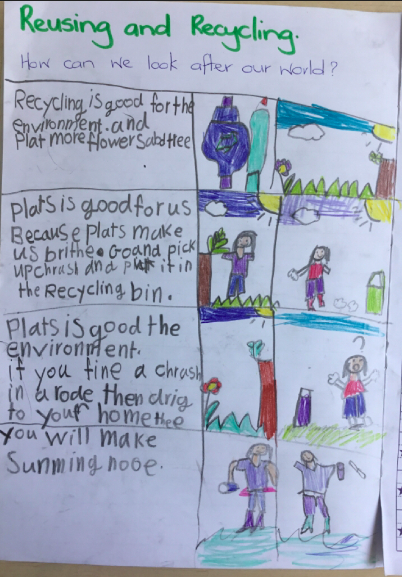 Reusing and Recycling.
How can we look after our world?
Recycling is good for the
environment. and
Plat more flowersabdtree
Plats is good for us
Because plats make
us brithe. Goand pick
up chrash and put it in
the Recycling bin.
Plats is good the
environment.
if you fine a chrash
in a rode then drig
to your home thee
You will make
Sunming nooe.